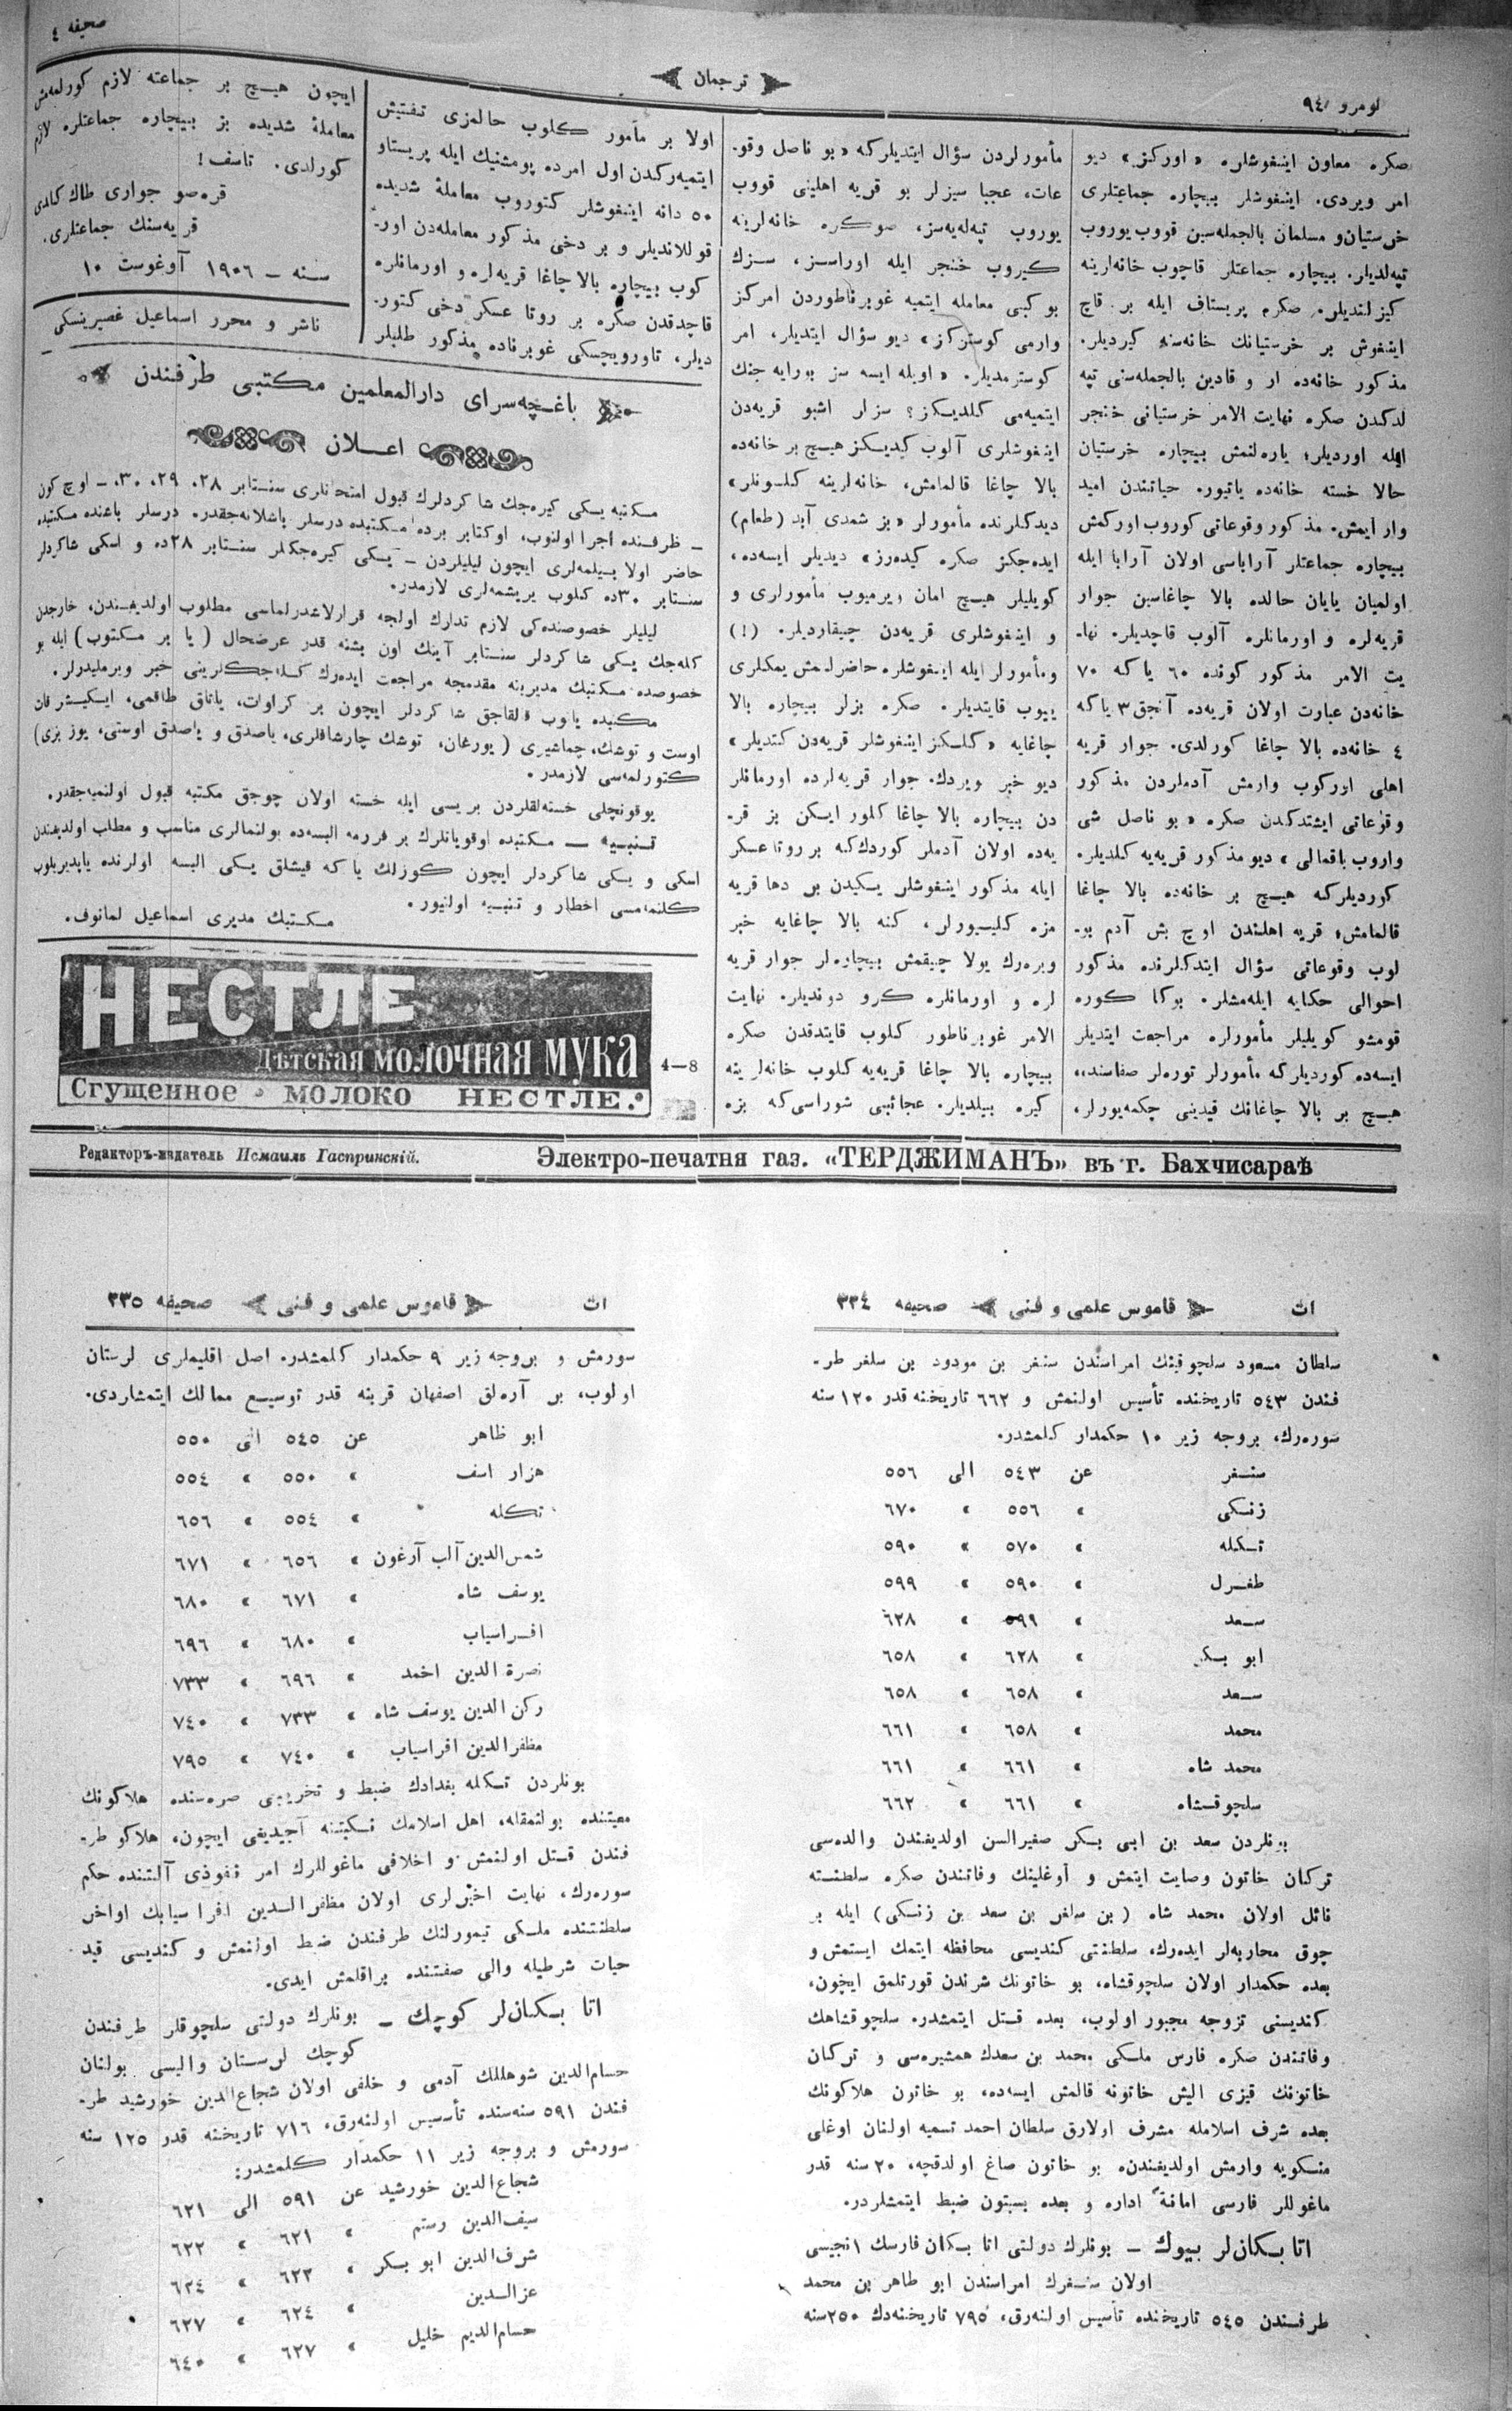 صحيفه ٤
ترجمان
نومرو ٩٤
صكره معاون اينغوشلره « اورڭز » ديو
امر ويردى. اينغوشلر بيچاره جماعتلرى
خرستيان و مسلمان بالجمله‌سين قووب يوروب
تپه‌لديلر. بيچاره جماعتلر قاچوب خانه‌لرينه
كيزلنديلر. صكره پريستاف ايله بر قاچ
اينغوش بر خرستيانك خانه‌سنه كيرديلر.
مذكور خانه‌ده ار و قادين بالجمله‌سنى تپه
لدكدن صكره نهايت الامر خرستيانى خنجر
ايله اورديلر؛ ياره‌لنمش بيچاره خرستيان
حالا خسته خانه‌ده ياتيور. حياتندن اميد
وار ايمش. مذكور وقوعاتى كوروب اوركمش
بيچاره جماعتلر آراباسى اولان آرابا ايله
اولميان يايان حالده بالا چاغاسين جوار
قريه‌لره و اورمانلره آلوب قاچديلر. نها-
يت الامر مذكور كونده ٦٠ ياكه ٧٠
خانه‌دن عبارت اولان قريه‌ده آنجق ٣ ياكه
٤ خانه‌ده بالا چاغا كورلدى. جوار قريه
اهلى اوركوب وارمش آدملردن مذكور
وقوعاتى ايشتدكدن صكره « بو ناصل شى
واروب باقمالى » ديو مذكور قريه‌يه كلديلر.
كورديلركه هيچ بر خانه‌ده بالا چاغا
قالمامش؛ قريه اهلندن اوچ بش آدم بو-
لوب وقوعاتى سؤال ايتدكلرنده مذكور
احوالى حكايه ايله‌مشلر. بوكا كوره
قومشو كويليلر مأمورلره مراجعت ايتديلر
ايسه‌ده كورديلركه مأمورلر توره‌لر صفاسنده،
هيچ بر بالا چاغانك قيدينى چكمه‌يورلر،
مأمورلردن سؤال ايتديلركه « بو ناصل وقو-
عات، عجبا سيزلر بو قريه اهلينى قووب
يوروب تپه‌له‌يه‌سز، صوكره خانه‌لرينه
كيروب خنجر ايله اوراسز، سزك
بو كبى معامله ايتميه غوبرناطوردن امركز
وارمى كوستركز » ديو سؤال ايتديلر، امر
كوسترمديلر. « اويله ايسه سز بورايه جنك
ايتميه‌مى كلديكز؟ سزلر اشبو قريه‌دن
اينغوشلرى آلوب كيديكز هيچ بر خانه‌ده
بالا چاغا قالمامش، خانه‌لرينه كلسونلر »
ديدكلرنده مأمورلر « بز شمدى آبد (طعام)
ايده‌جكز صكره كيده‌رز » ديديلر ايسه‌ده،
كويليلر هيچ امان ويرميوب مأمورلرى و
و اينغوشلرى قريه‌دن چيقارديلر. (!)
ومأمورلر ايله اينغوشلره حاضرلنمش يمكلرى
ييوب قايتديلر. صكره بزلر بيچاره بالا
چاغايه « كلسكز اينغوشلر قريه‌دن كتديلر »
ديو خبر ويردك. جوار قريه‌لرده اورمانلر
دن بيچاره بالا چاغا كلور ايكن بز قر-
يه‌ده اولان آدملر كوردك‌كه بر روتا عسكر
ايله مذكور اينغوشلر يسكيدن بر دها قريه
مزه كليورلر، كنه بالا چاغايه خبر
ويره‌رك يولا چيقمش بيچاره‌لر جوار قريه
لره و اورمانلره كرو دونديلر. نهايت
الامر غوبرناطور كلوب قايتدقدن صكره
بيچاره بالا چاغا قريه‌يه كلوب خانه‌لرينه
كيره بيلديلر. عجائبى شوراسى كه بزه
اولا بر مأمور كلوب حالمزى تفتيش
ايتميه‌ركدن اول امرده پومشنيك ايله پريستاو
٥٠ دانه اينغوشلر كتوروب معامله شديده
قوللانديلر و بر دخى مذكور معامله‌دن اور-
كوب بيچاره بالا چاغا قريه‌لره و اورمانلره
قاچدقدن صكره بر روتا عسكر دخى كتور-
ديلر، تاورويچسكى غوبرناده مذكور طلبلر
ايچون هيچ بر جماعته لازم كورلمه‌مش
معاملۀ شديده بز بيچاره جماعتلره لازم
كورلدى. تاسف!
قره‌صو جوارى طاك كلدى
قريه‌سنك جماعتلرى.
سنه – ١٩٠٦ آوغوست ١٠
ناشر و محرر اسماعيل غصپرينسكى
باغچه‌سراى دارالمعلمين مكتبى طرفندن
اعلان
مكتبه يكى كيره‌جك شاكردلرك قبول امتحانلرى سنتابر ٢٨، ٢٩، ٣٠. – اوچ كون
– ظرفنده اجرا اولنوب، اوكتابر برده مكتبده درسلر باشلانه‌جقدر. درسلر باغنده مكتبده
حاضر اولا بيلمه‌لرى ايچون ليليلردن – يكى كيره‌جكلر سنتابر ٢٨ده و اسكى شاكردلر
سنتابر ٣٠ده كلوب يريشمه‌لرى لازمدر.
ليليلر خصوصنده‌كى لازم تدارك اولجه قرارلاشدرلماسى مطلوب اولديغندن، خارجدن
كله‌جك يكى شاكردلر سنتابر آينك اون بشنه قدر عرضحال (يا بر مكتوب) ايله بو
خصوصده مكتبك مديرينه مقدمجه مراجعت ايده‌رك كله‌جكلرينى خبر ويرمليدرلر.
مكتبده ياتوب قالقاجق شاكردلر ايچون بر كراوات، ياتاق طاقمى، ايكيشر قات
اوست و توشك، چماشيرى (يورغان، توشك چارشافلرى، ياصدق و ياصدق اوستى، يوز بزى)
كتورلمه‌سى لازمدر.
يوقونچلى خسته‌لقلردن بريسى ايله خسته اولان چوجق مكتبه قبول اولنميه‌جقدر.
تنبيه — مكتبده اوقويانلرك بر فورمه البسه‌ده بولنمالرى مناسب و مطلب اولديغندن
اسكى و يكى شاكردلر ايچون كوزلك ياكه قيشلق يكى البسه اولرنده ياپديريلوب
كلنمامسى اخطار و تنبيه اولنيور.
مكتبك مديرى اسماعيل لمانوف.
НЕСТЛЕ
Дѣтская МОЛОЧНАЯ МУКА
Сгущенное МОЛОКО НЕСТЛЕ.
4—8
Редакторъ-издатель Исмаилъ Гаспринскій.
Электро-печатня газ. «ТЕРДЖИМАНЪ» въ г. Бахчисараѣ
اث
قاموس علمى و فنى
صحيفه ٣٣٤
سلطان مسعود سلچوقينك امراسندن سنقر بن مودود بن سلغر طر-
فندن ٥٤٣ تاريخنده تأسيس اولنمش و ٦٦٢ تاريخنه قدر ١٢٠ سنه
سوره‌رك، بروجه زير ١٠ حكمدار كلمشدر.
سنقر عن ٥٤٣ الى ٥٥٦
زنكى » ٥٥٦ » ٦٧٠
تكله » ٥٧٠ » ٥٩٠
طغرل » ٥٩٠ » ٥٩٩
سعد » ٥٩٩ » ٦٢٨
ابو بكر » ٦٢٨ » ٦٥٨
سعد » ٦٥٨ » ٦٥٨
محمد » ٦٥٨ » ٦٦١
محمد شاه » ٦٦١ » ٦٦١
سلچوقشاه » ٦٦١ » ٦٦٢
بونلردن سعد بن ابى بكر صغيرالسن اولديغندن والده‌سى
تركان خاتون وصايت ايتمش و اوغلينك وفاتندن صكره سلطنته
نائل اولان محمد شاه (بن سلغر بن سعد بن زنكى) ايله بر
چوق محاربه‌لر ايده‌رك، سلطنتى كنديسى محافظه ايتمك ايستمش و
بعده حكمدار اولان سلچوقشاه، بو خاتونك شرندن قورتلمق ايچون،
كنديسنى تزوجه مجبور اولوب، بعده قتل ايتمشدر. سلچوقشاهك
وفاتندن صكره فارس ملكى محمد بن سعدك همشيره‌سى و تركان
خاتونك قيزى اليش خاتونه قالمش ايسه‌ده، بو خاتون هلاكونك
بعده شرف اسلامله مشرف اولارق سلطان احمد تسميه اولنان اوغلى
منكويه وارمش اولديغندن، بو خاتون صاغ اولدقچه، ٢٠ سنه قدر
ماغوللر فارسى امانةً اداره و بعده بستون ضبط ايتمشلردر.
اتا بكان‌لر بيوك – بونلرك دولتى اتا بكان فارسك ١نجيسى
اولان سنقرك امراسندن ابو طاهر بن محمد
طرفندن ٥٤٥ تاريخنده تأسيس اولنه‌رق، ٧٩٥ تاريخنه‌دك ٢٥٠ سنه
اث
قاموس علمى و فنى
صحيفه ٣٣٥
سورمش و بروجه زير ٩ حكمدار كلمشدر. اصل اقليملرى لرستان
اولوب، بر آره‌لق اصفهان قربنه قدر توسيع ممالك ايتمشلردى.
ابو طاهر عن ٥٤٥ الى ٥٥٠
هزار اسف » ٥٥٠ » ٥٥٤
تكله » ٥٥٤ » ٦٥٦
شمس‌الدين آلب آرغون » ٦٥٦ » ٦٧١
يوسف شاه » ٦٧١ » ٦٨٠
افراسياب » ٦٨٠ » ٦٩٦
نصرة الدين احمد » ٦٩٦ » ٧٣٣
ركن الدين يوسف شاه » ٧٣٣ » ٧٤٠
مظفرالدين افراسياب » ٧٤٠ » ٧٩٥
بونلردن تكله بغدادك ضبط و تخريبى صره‌سنده هلاكونك
معيتنده بولنمقله، اهل اسلامك نكبتنه آجيديغى ايچون، هلاكو طر-
فندن قتل اولنمش و اخلافى ماغوللرك امر و نفوذى آلتنده حكم
سوره‌رك، نهايت اخيرلرى اولان مظفرالدين افراسيابك اواخر
سلطنتنده ملكى تيمورلنك طرفندن ضبط اولنمش و كنديسى قيد
حيات شرطيله والى صفتنده براقلمش ايدى.
اتا بكان‌لر كوچك – بونلرك دولتى سلچوقلر طرفندن
كوچك لرستان واليسى بولنان
حسام‌الدين شوهللك آدمى و خلفى اولان شجاع‌الدين خورشيد طر-
فندن ٥٩١ سنه‌سنده تأسيس اولنه‌رق، ٧١٦ تاريخنه قدر ١٢٥ سنه
سورمش و بروجه زير ١١ حكمدار كلمشدر:
شجاع‌الدين خورشيد عن ٥٩١ الى ٦٢١
سيف‌الدين رستم » ٦٢١ » ٦٢٢
شرف‌الدين ابو بكر » ٦٢٢ » ٦٢٤
عزالدين » ٦٢٤ » ٦٢٧
حسام‌الديم خليل » ٦٢٧ » ٦٤٠